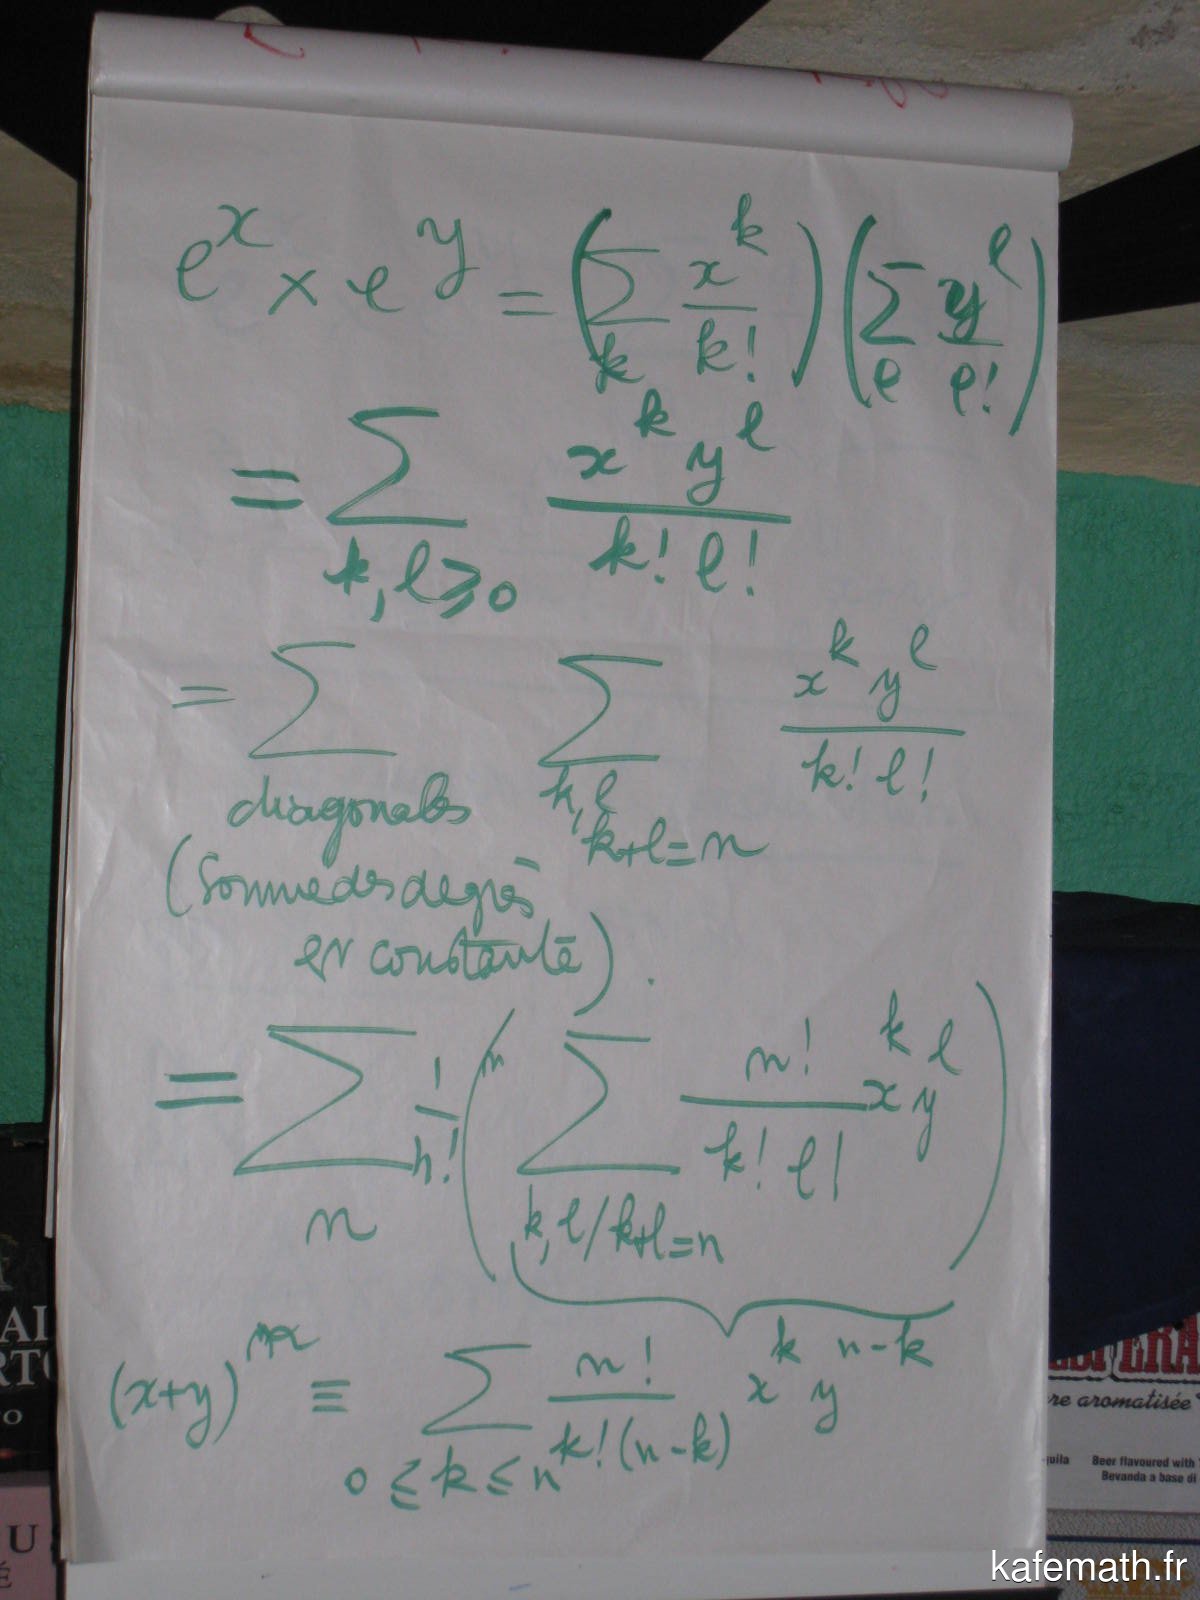 e^x × e^y = (∑_k x^k/k!) (∑_l y^l/l!)
= ∑_{k,l≥0} x^k y^l / k! l!
= ∑ ∑ x^k y^l / k! l!
diagonales k,l
k+l=n
(Somme des degrés
est constante).
= ∑_n 1/n! (∑_{k,l/k+l=n} n!/k! l! x^k y^l)
(x+y)^n ≡ ∑_{0≤k≤n} n!/k!(n-k) x^k y^{n-k}
PERA
re aromatisée
Beer flavoured with
Bevanda a base di
kafemath.fr